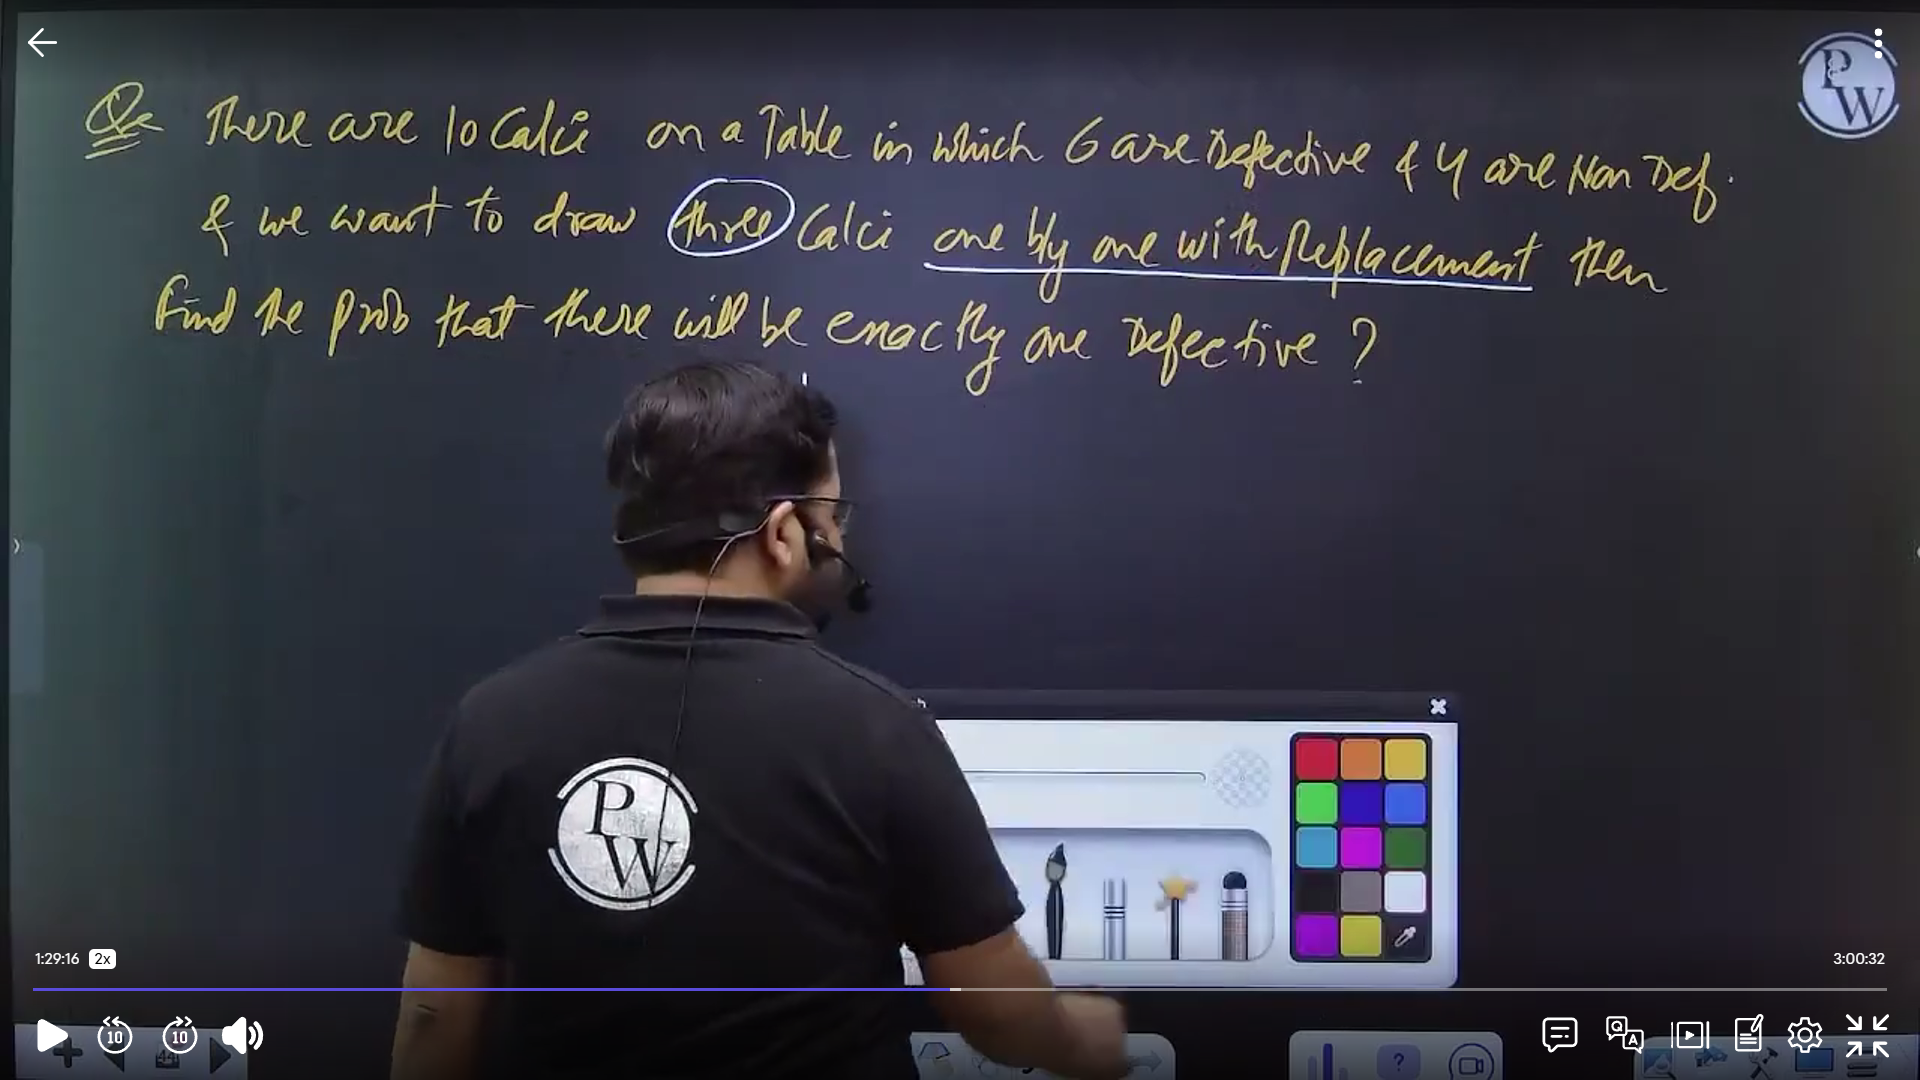 Q. There are 10 Calci on a Table in which 6 are Defective & 4 are Non Def.
& we want to draw three Calci one by one with Replacement then
Find the prob that there will be exactly one Defective ?
PW
PW
1:29:16 2x
3:00:32
10 10
44
?